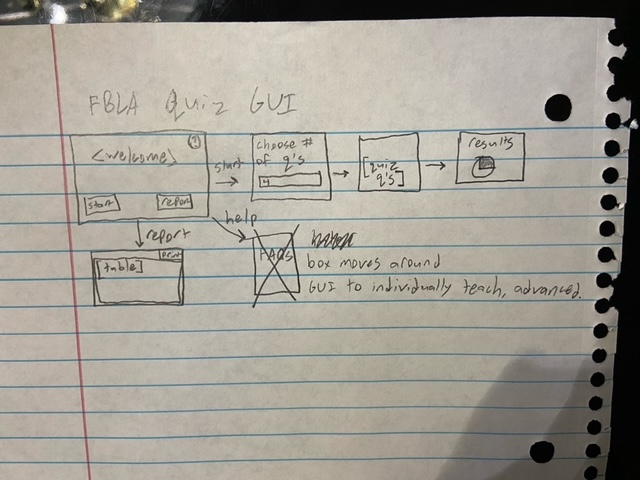 FBLA Quiz GUI
<welcome>
start
report
start
choose #
of q's
[quiz
q's]
results
report
help
print
[table]
FAQs
box moves around
GUI to individually teach, advanced.